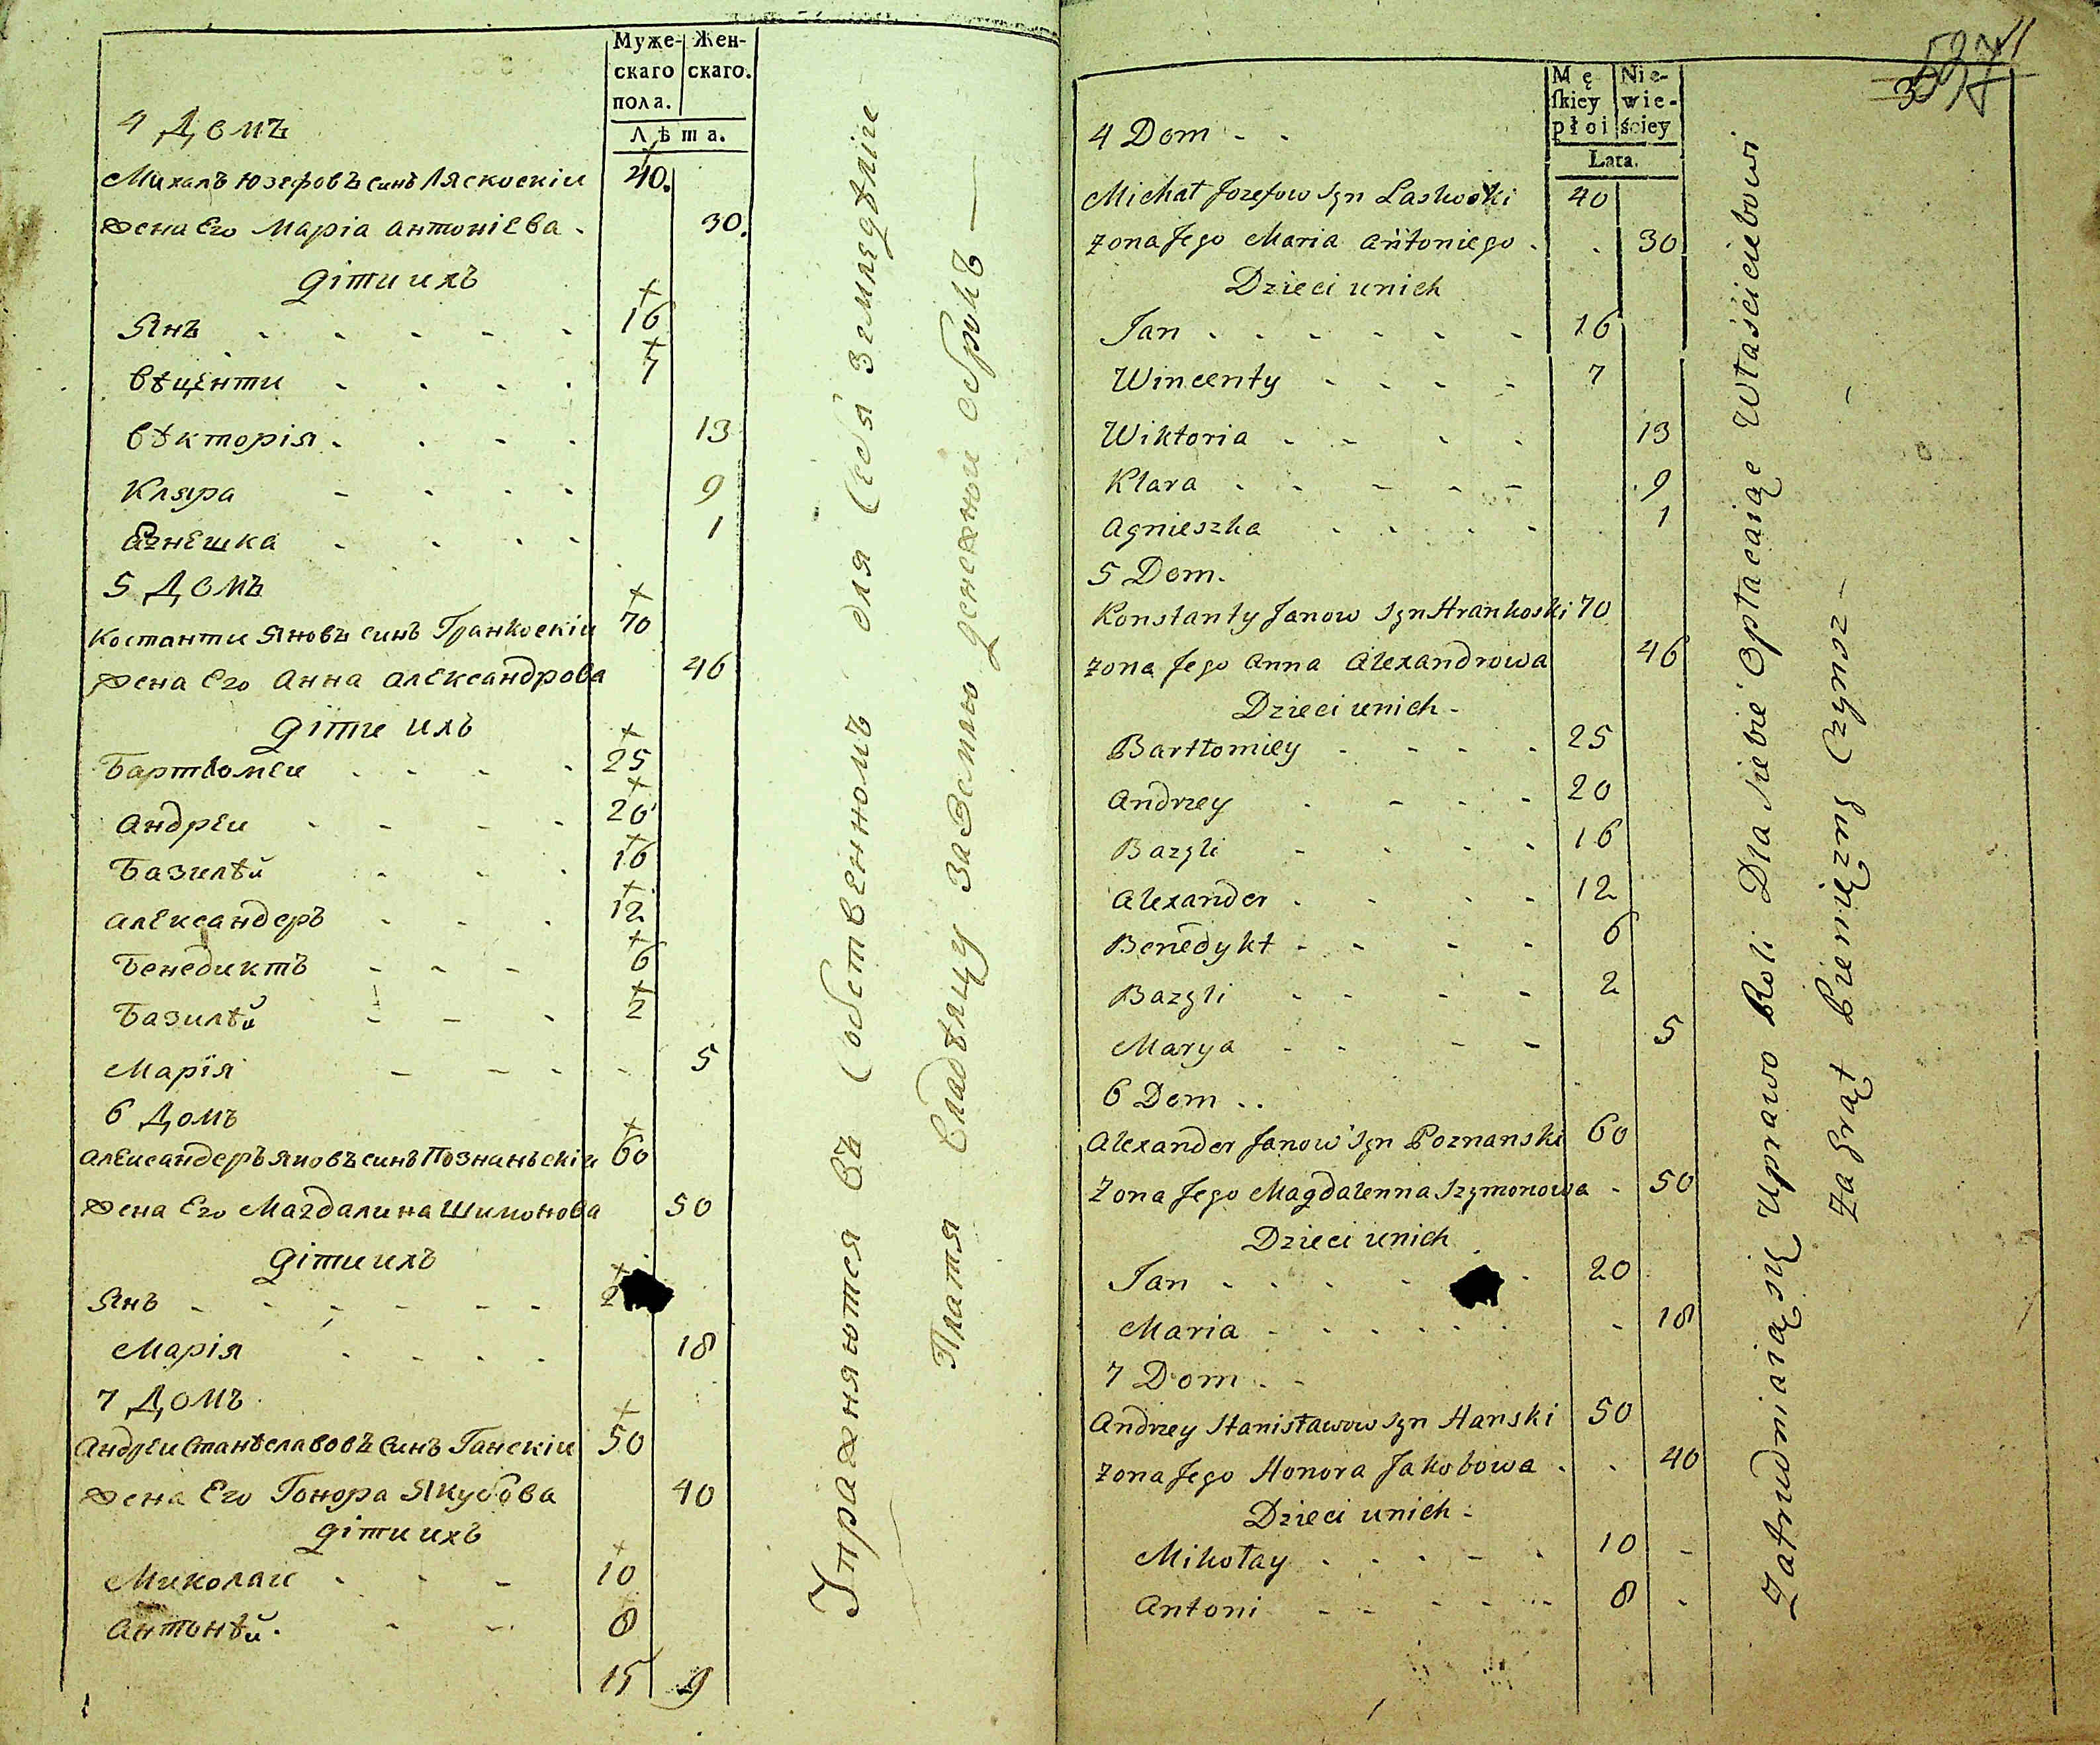 Муже- Жен-
скаго скаго.
пола.
Лѣта.
4 Домъ
Михалъ Юзефовъ синъ Ляскоскіи 40.
жена Его Маріа Антоніева . 30.
діти ихъ
Янъ 16
Вѣценти 7
Вѣкторія 13
Кляра 9
Агнешка 1
5 Домъ
Костанти Яновъ синъ Гранкоскіи 70
жена Его Анна Александрова 46
діти ихъ
Бартломеи 25
Андреи 20
Базилѣй 16
Александеръ 12
Бенедиктъ 6
Базилѣй 2
Марія 5
6 Домъ
Александеръ Яновъ синъ Познаньскіи 60
жена Его Магдалина Шимонова 50
діти ихъ
Янъ 2
Марія 18
7 Домъ
Андреи Станѣславовъ Синъ Ганскіи 50
жена Его Гонора Якубова 40
діти ихъ
Миколаи 10
Антонѣй 8
15 9
Упражняются въ Собственномъ для Себя Земледѣліе
Платя Владѣлцу за Землю денежнии оброкъ —
Mę Nie-
ſkiey wie-
płci ściey
Lata.
4 Dom
Michał Jozefow Syn Laskoski 40
Zona Jego Maria Antoniego 30
Dzieci unich
Jan 16
Wincenty 7
Wiktoria 13
Klara 9
Agnieszka 1
5 Dom.
Konstanty Janow Syn Hrankoski 70
Zona Jego Anna Alexandrowa 46
Dzieci unich
Bartłomiey 25
Andrzey 20
Bazyli 16
Alexander 12
Benedykt 6
Bazyli 2
Marya 5
6 Dom
Alexander Janow Syn Poznanski 60
Zona Jego Magdalenna Szymonowa 50
Dzieci unich
Jan 20
Maria 18
7 Dom
Andrzey Stanisławow Syn Hanski 50
Zona Jego Honora Jakobowa 40
Dzieci unich
Mikołay 10
Antoni 8
Zatrudniaią się Uprawo Roli Dla siebie Opłacaiąc Właścicielowi
Za Grąt Pieniężny Czynsz —